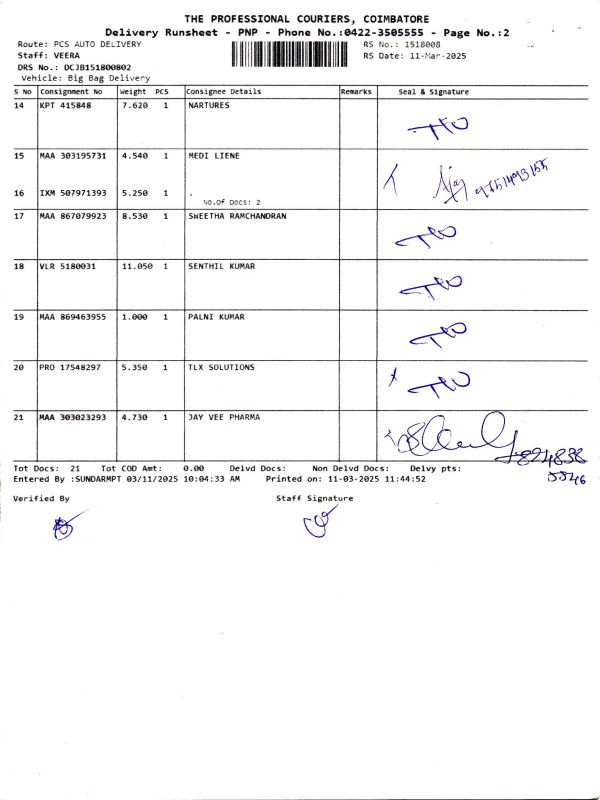 THE PROFESSIONAL COURIERS, COIMBATORE
Delivery Runsheet - PNP - Phone No.:0422-3505555 - Page No.:2
Route: PCS AUTO DELIVERY RS No.: 1518008
Staff: VEERA RS Date: 11-Mar-2025
DRS No.: DCJB151800802
Vehicle: Big Bag Delivery
S No Consignment No Weight PCS Consignee Details Remarks Seal & Signature
14 KPT 415848 7.620 1 NARTURES
15 MAA 303195731 4.540 1 MEDI LIENE
16 IXM 507971393 5.250 1 .
No.Of Docs: 2
17 MAA 867079923 8.530 1 SWEETHA RAMCHANDRAN
18 VLR 5180031 11.050 1 SENTHIL KUMAR
19 MAA 869463955 1.000 1 PALNI KUMAR
20 PRO 17548297 5.350 1 TLX SOLUTIONS
21 MAA 303023293 4.730 1 JAY VEE PHARMA
Tot Docs: 21 Tot COD Amt: 0.00 Delvd Docs: Non Delvd Docs: Delvy pts:
Entered By :SUNDARMPT 03/11/2025 10:04:33 AM Printed on: 11-03-2025 11:44:52
Verified By Staff Signature